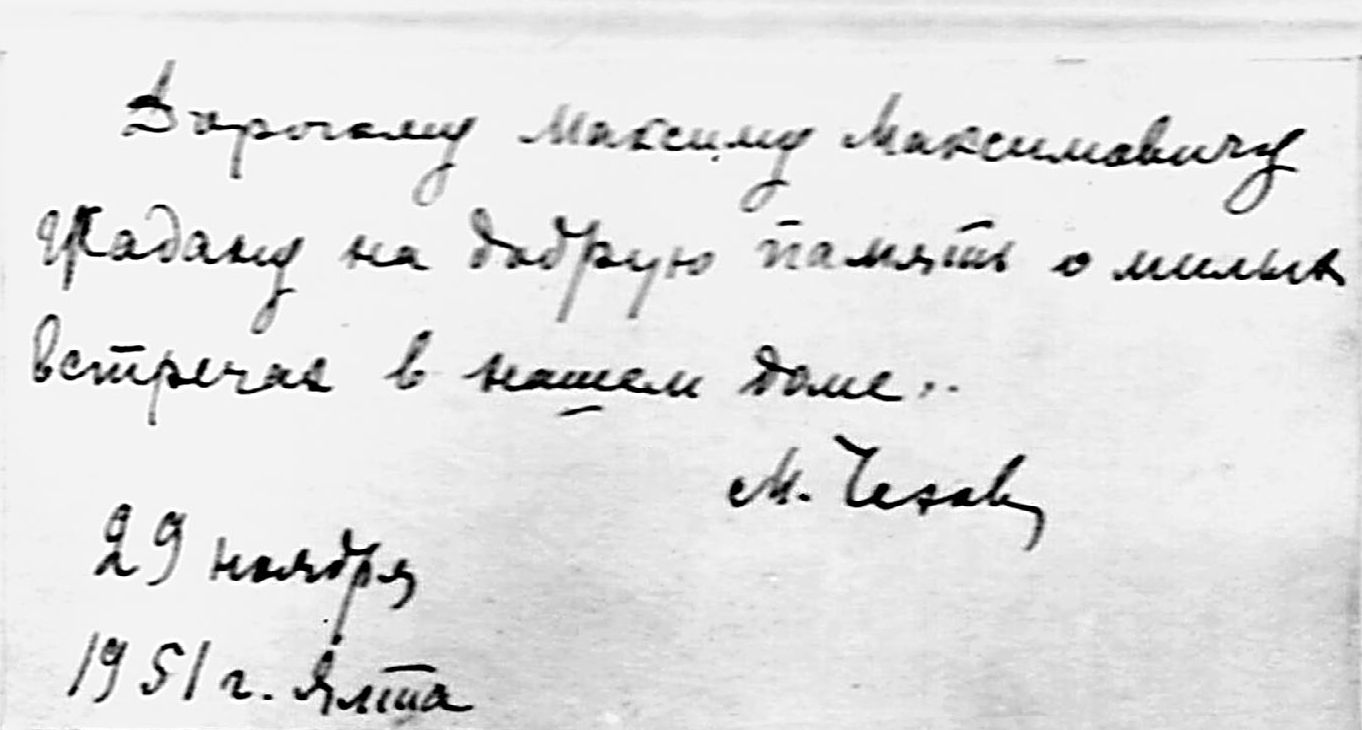 Дорогому Максиму Максимовичу
на добрую память о милых
встречах в нашем доме..
М. Чехов
29 ноября
1951 г. Ялта